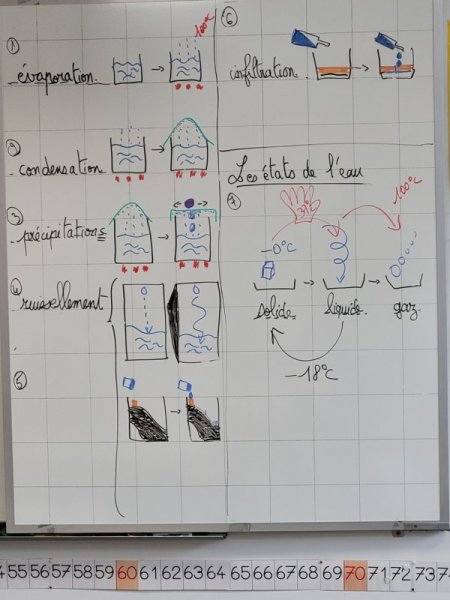 1
évaporation.
100°C
2
condensation
3
précipitations
4
ruissellement
5
6
infiltration.
Les états de l'eau
7
37°C
100°C
-0°C
solide.
liquide.
gaz
-18°C
55 56 57 58 59 60 61 62 63 64 65 66 67 68 69 70 71 72 73 74